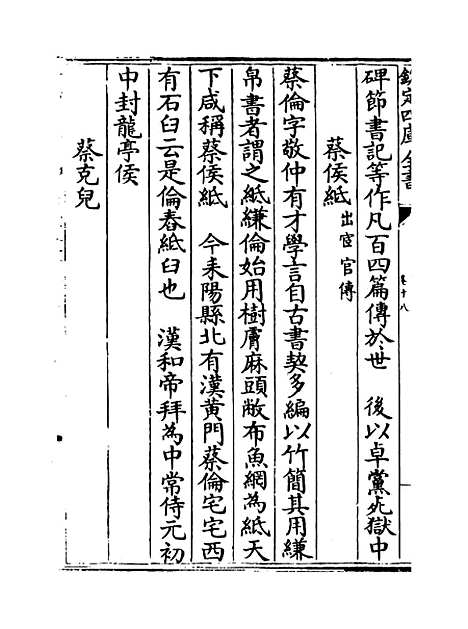 欽定四庫全書
卷十八
碑節書記等作凡百四篇傳於世　後以卓黨死獄中
蔡侯紙出宦官傳
蔡倫字敬仲有才學言自古書契多編以竹簡其用縑
帛書者謂之紙縑倫始用樹膚麻頭敝布魚網為紙天
下咸稱蔡侯紙　今耒陽縣北有漢黄門蔡倫宅宅西
有石臼云是倫舂紙臼也　漢和帝拜為中常侍元初
中封龍亭侯
蔡克兒